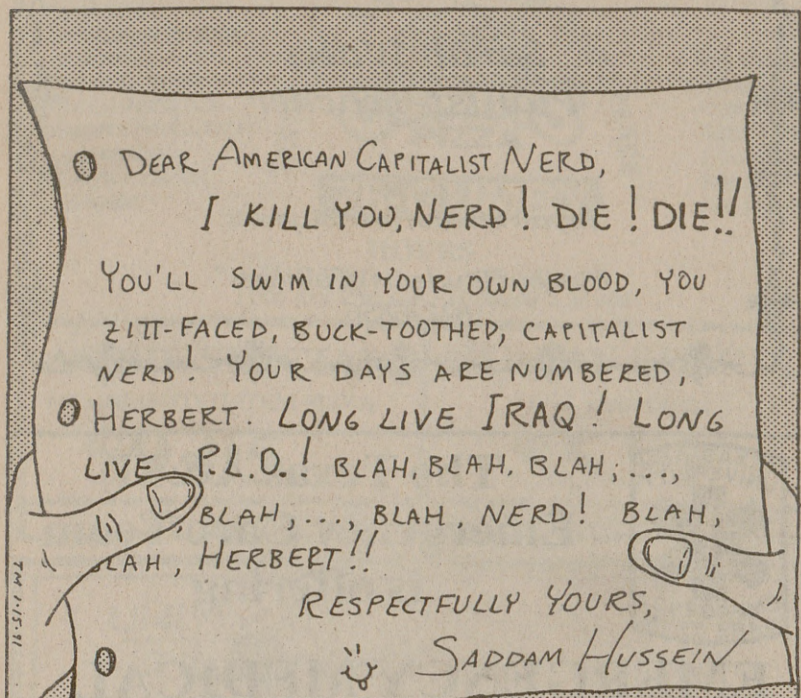 DEAR AMERICAN CAPITALIST NERD,
I KILL YOU, NERD! DIE! DIE!!
YOU'LL SWIM IN YOUR OWN BLOOD, YOU
ZITT-FACED, BUCK-TOOTHED, CAPITALIST
NERD! YOUR DAYS ARE NUMBERED,
HERBERT. LONG LIVE IRAQ! LONG
LIVE P.L.O.! BLAH, BLAH, BLAH, ...,
BLAH, ..., BLAH, NERD! BLAH,
LAH, HERBERT!!
RESPECTFULLY YOURS,
SADDAM HUSSEIN
TM 1-15-91